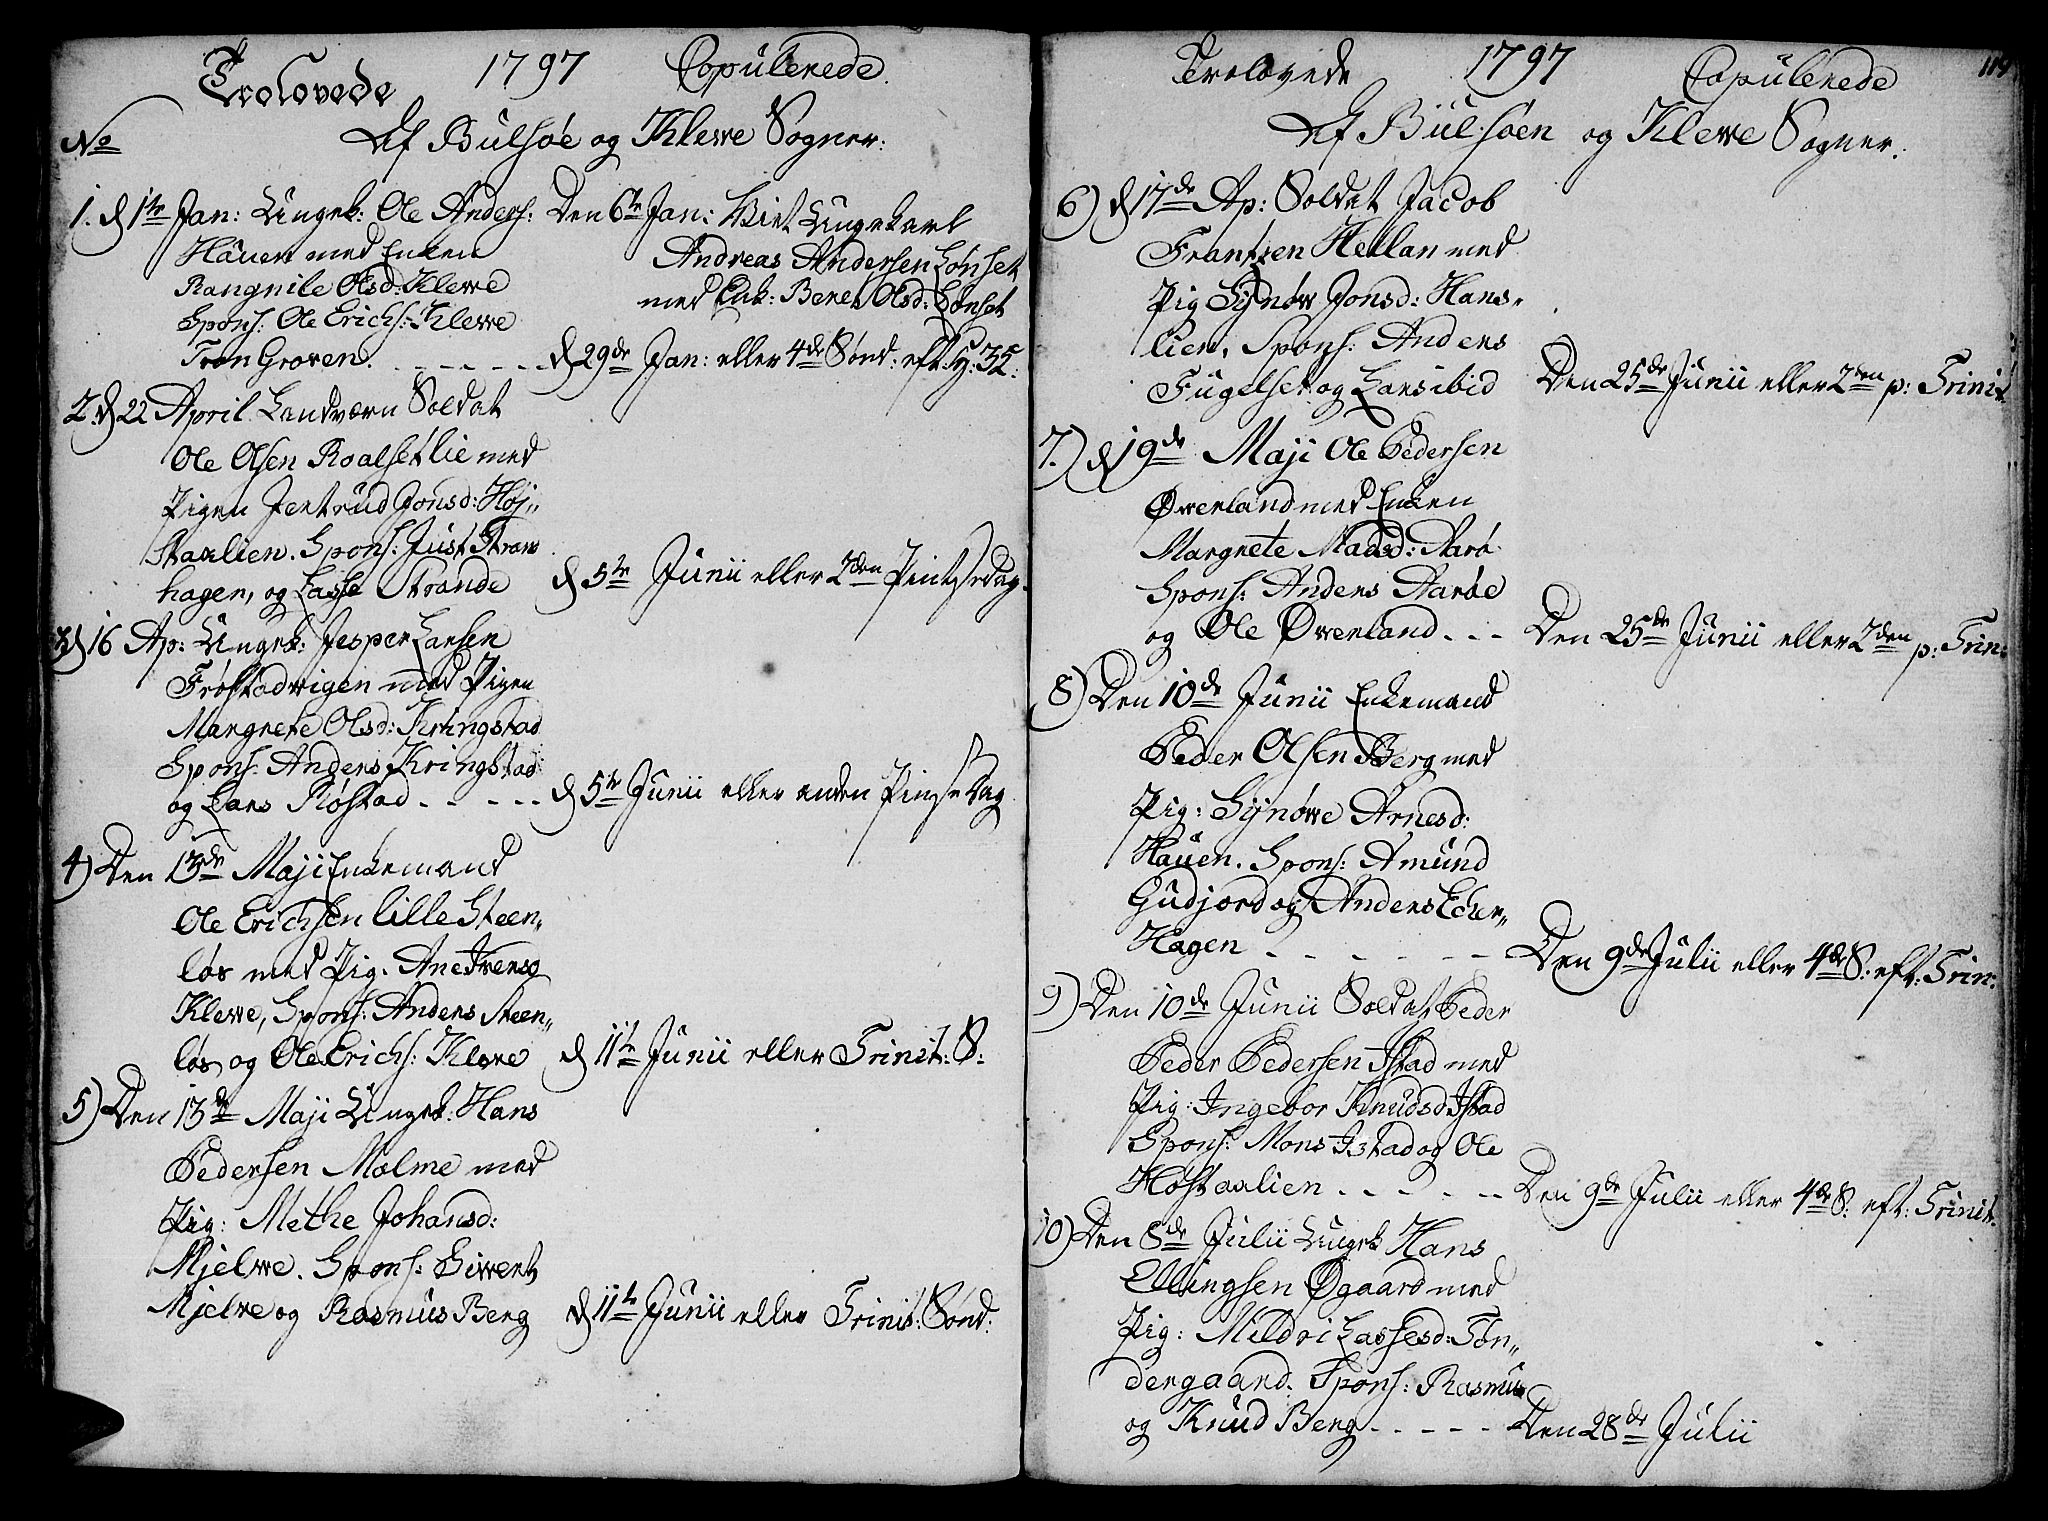 Trolovede 1797 Copulerede.
No Af Bulsøe og Klewe Sogner:
1. d 1te Jan: Ungek: Ole Anders:
Hauen med Enken
Rangnile Olsd: Klewe
Spons: Ole Erichs: Klewe
Tron Groven. - - - - -
Den 6te Jan: Viet Ungekarl
Andreas Andersen Lønset
med Enk: Beret Olsd: Lønset
d 29de Jan: eller 4de Sønd: eft: H: 3 K:
2. d 22 April Landværn Soldat
Ole Olsen Roalsetlie med
Pigen Jertrud Jonsd: Høj„
staalien. Spons: Just Strand
hagen, og Lasse Strande
d 5te Junii eller 2den Pintsedag.
3. d 16 Ap: Ungek: Jesper Larsen
Frøstadvigen med Pigen
Margrete Olsd: Kringstad
Spons: Anders Kringstad
og Lars Røstad - - - - -
d 5te Junii eller anden Pingsedag
4) Den 13de Maji Enkemand
Ole Erichsen lille Steen„
løs med Pig. Ane Iversd
Klewe, Spons: Anders Steen„
løs og Ole Erichs: Klewe
d 11te Junii eller Trinit: S:
5) Den 13de Maji Ungek: Hans
Pedersen Malme med
Pig: Methe Johansd:
Mjelwe. Spons: Siwert
Mjelwe og Rasmus Berg
d 11te Junii eller Trinit: Sønd:
Trolovede 1797 Copulerede 114
Af Bulsøen og Klewe Sogner.
6) d 17de Ap: Soldat Jacob
Frantzen Hellan med
Pig Synøw Jonsd: Hans„
lien, Spons: Anders
Fugelset og Lars ibid
Den 25de Junii eller 2den p: Trinit
7.) d 19de Maji Ole Pedersen
Øwerland med Enken
Margrete Madsd: Aarø
Spons: Anders Aarøe
og Ole Øwerland - - -
Den 25de Junii eller 2den p: Trin:
8) Den 10de Junii Enkemand
Peder Olsen Berg med
Pig: Synøwe Arnesd:
Hauen. Spons: Amund
Gudjord og Anders Eker„
Hagen - - - - - -
Den 9de Julii eller 4de S: eft: Trin:
9) Den 10de Junii Soldat Peder
Peder Pedersen Istad med
Pig: Ingebor Knudsd Istad
Spons: Mons Istad og Ole
Høstaalien - - - - -
Den 9de Julii eller 4de S: eft: Trinit.
10) Den 8de Julii Ungek Hans
Ellingsen Øgaard med
Pig: Mildri Lassesd: Tøn„
dergaard. Spons: Rasmus
og Knud Berg - - - - -
Den 28de Julii